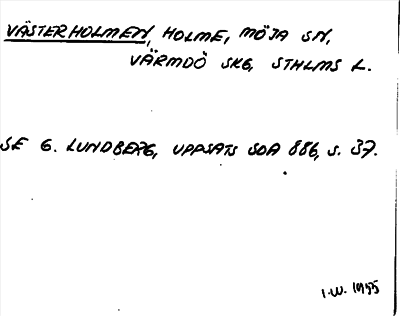 VÄSTERHOLMEN, HOLME, MÖJA SN,
VÄRMDÖ SKG, STHLMS L.
SE G. LUNDBERG, UPPSATS SOA 886, S. 37.
I.W. 1955